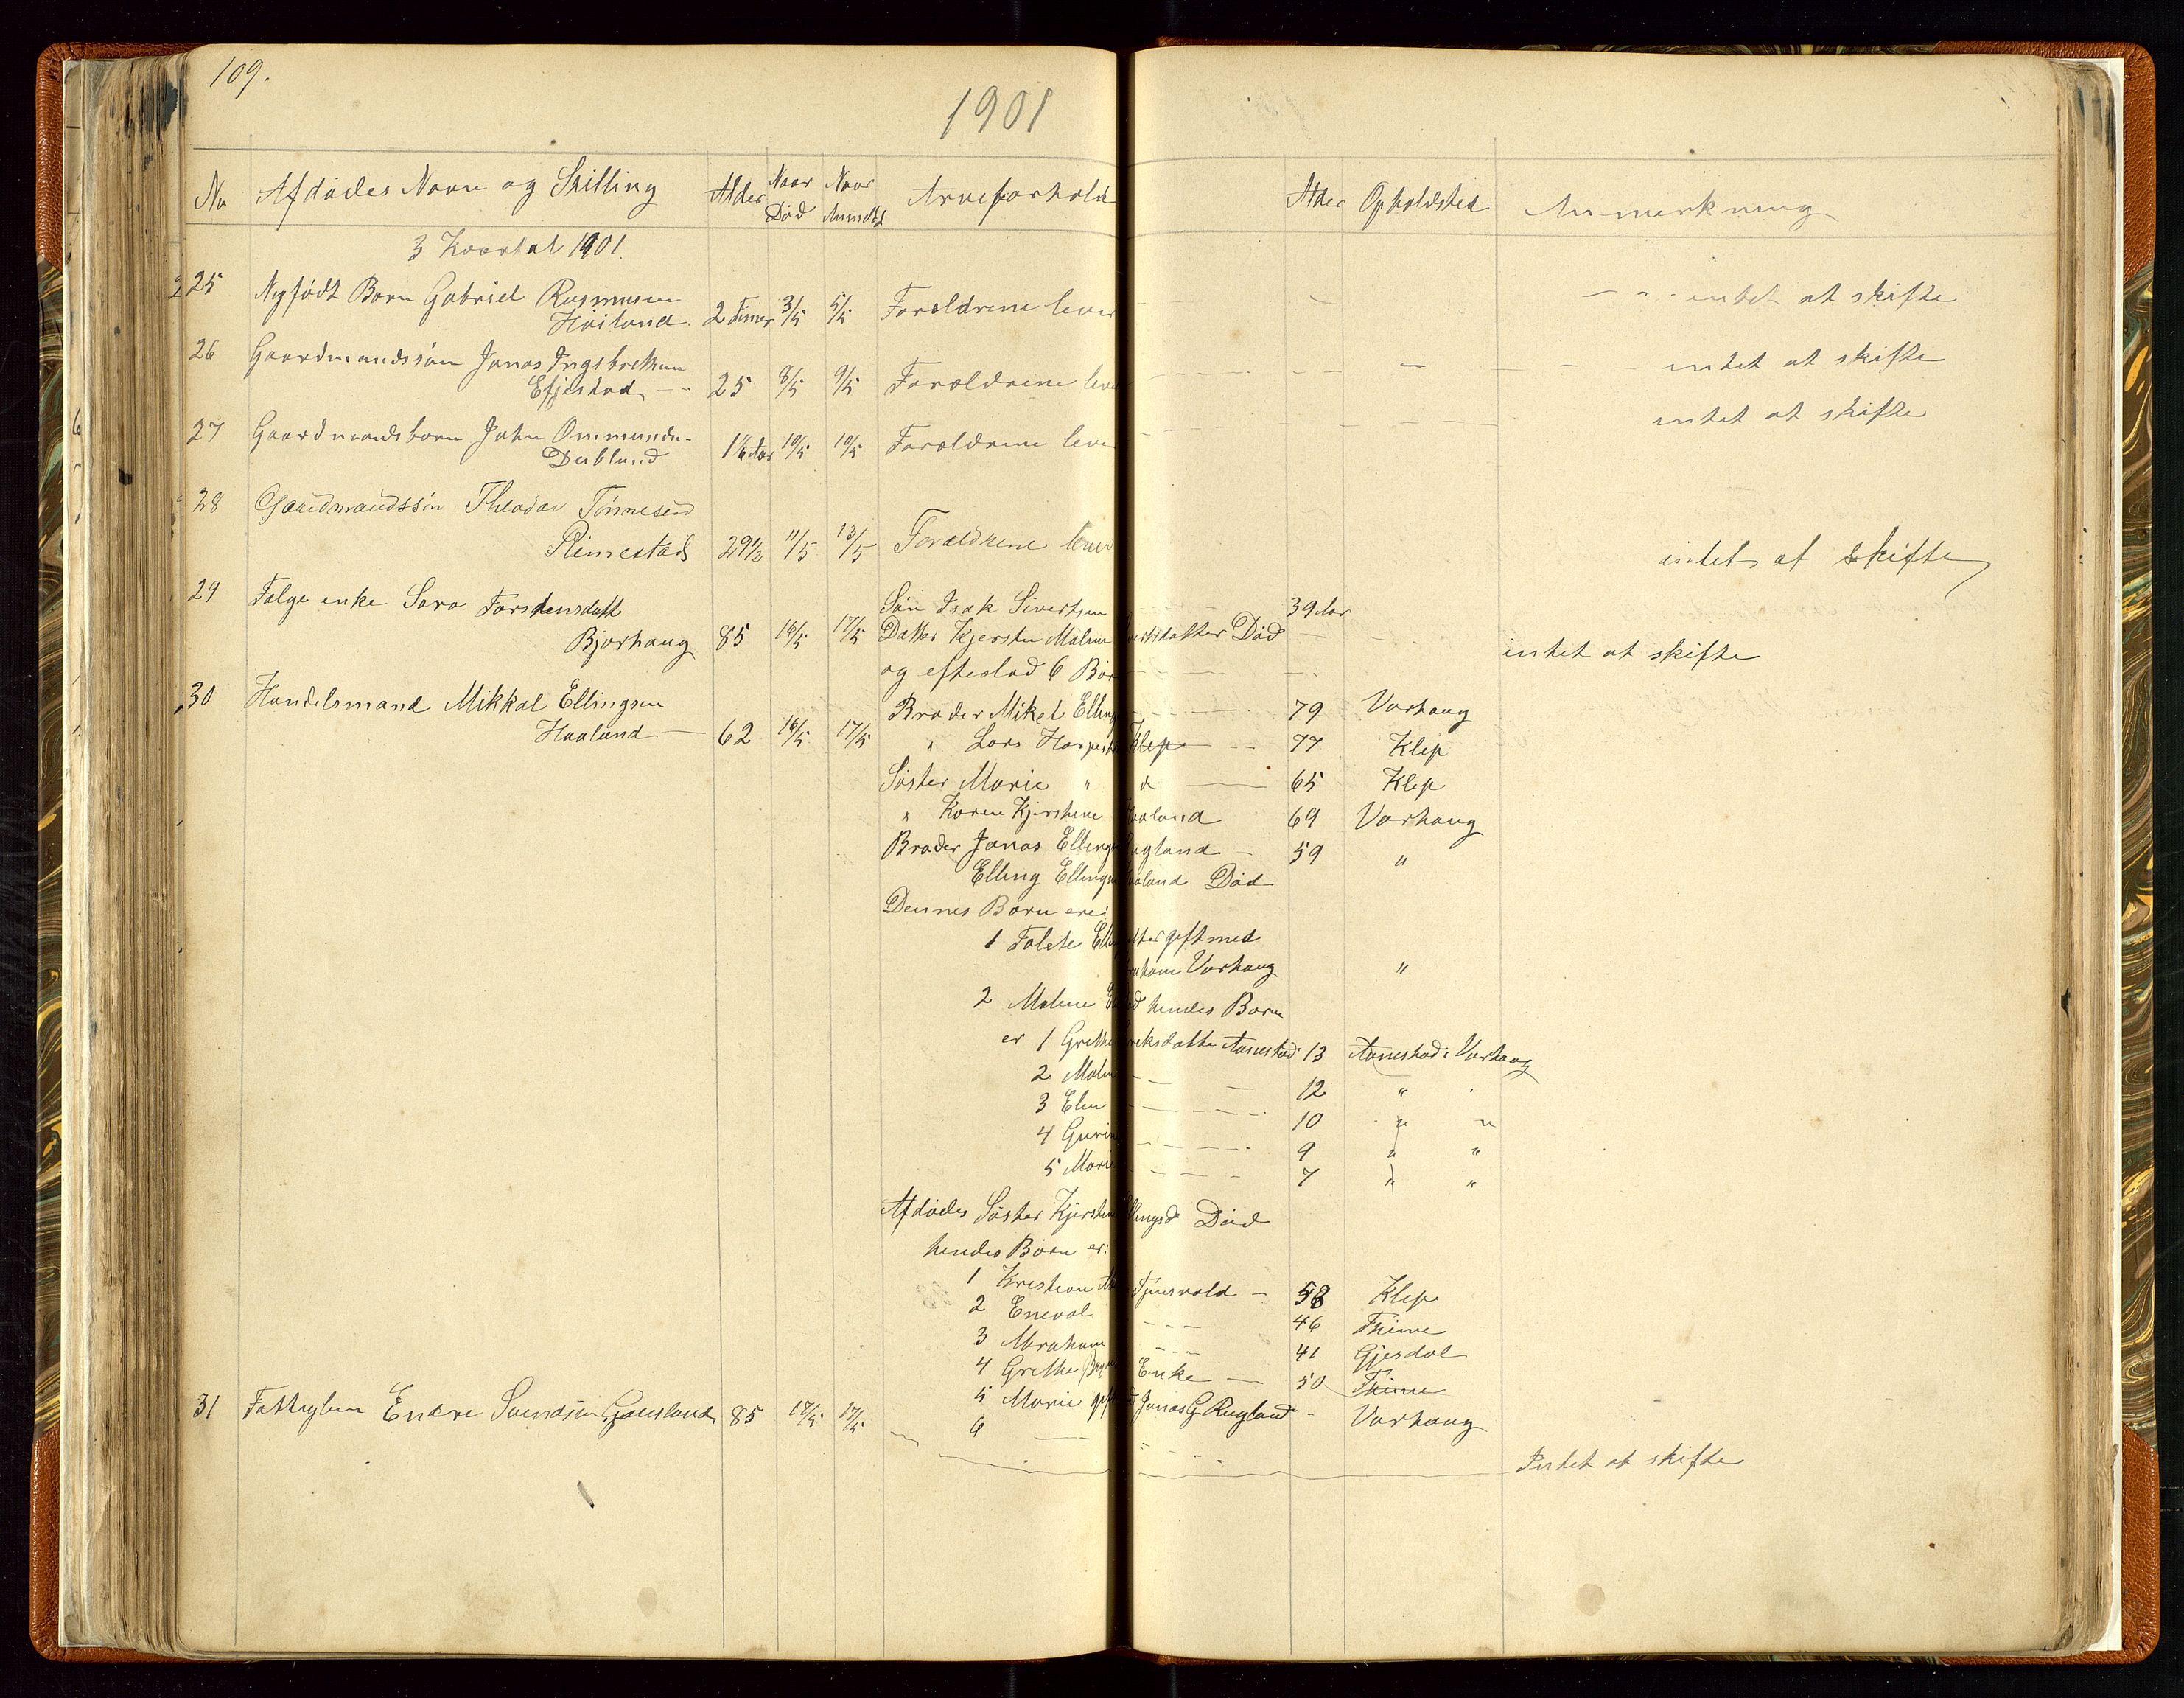 109.
1901
No Afdødes Navn og Stilling Alder Naar Død Naar Anmeldt Arveforhold Alder Opholdsted Anmerkning
3 Kvartal 1901.
25 Nyfødt Barn Gabriel Rasmusen
Høiland. 2 Timer 3/5 5/5 Forældrene lever - - - intet at skifte
26 Gaardmandssøn Jonas Ingebretsen
Efjestad 25 8/5 9/5 Forældrene leve - - - intet at skifte
27 Gaardmandsbarn John Ommunds-
Dubland 10/5 10/5 Forældrene leve intet at skifte
28 Gaardmandssøn Theodor Tønnesen
Rimestad 29½ 11/5 13/5 Forældrene lever intet at skifte
29 Folge enke Sara Torstensdatt Søn Isak Sivertsen 39 Aar
Bjorhaug 85 16/5 17/5 Datter Kjersten Malene datter Død intet at skifte
og efterlod 6 Bør
30 Handelsmand Mikkal Ellingsen Broder Mikel Elling 79 Varhaug
Haaland 62 16/5 17/5 " Lars Klep 77 Klep
Søster Marie " " 65 Klep
" Karen Kjerstene Haaland 69 Varhaug
Broder Jonas Ellings Rugland 59 "
Elling Ellings Haaland Død
Dennes Børn ere:
1 Tolete gift med
Varhaug "
2 Malene hendes Børn
er 1 Grethe Aanestad 13 Aanestad Varhaug
2 Malen 12 "
3 Elen 10 " "
4 Guri 9 " "
5 Marie 7 " "
Afdødes Søster Kjersten Ellingsd Død
hendes Børn er:
1 Kristian Tjensvold 58 Klep
2 Eneval 46 Thime
3 Abraham 41 Gjesdal
4 Grethe Enke 50 Thime
5 Marie Jonas G. Rugland Varhaug
31 Fattiglem Endre Svendsen 85 17/5 17/5 6
Intet at skifte